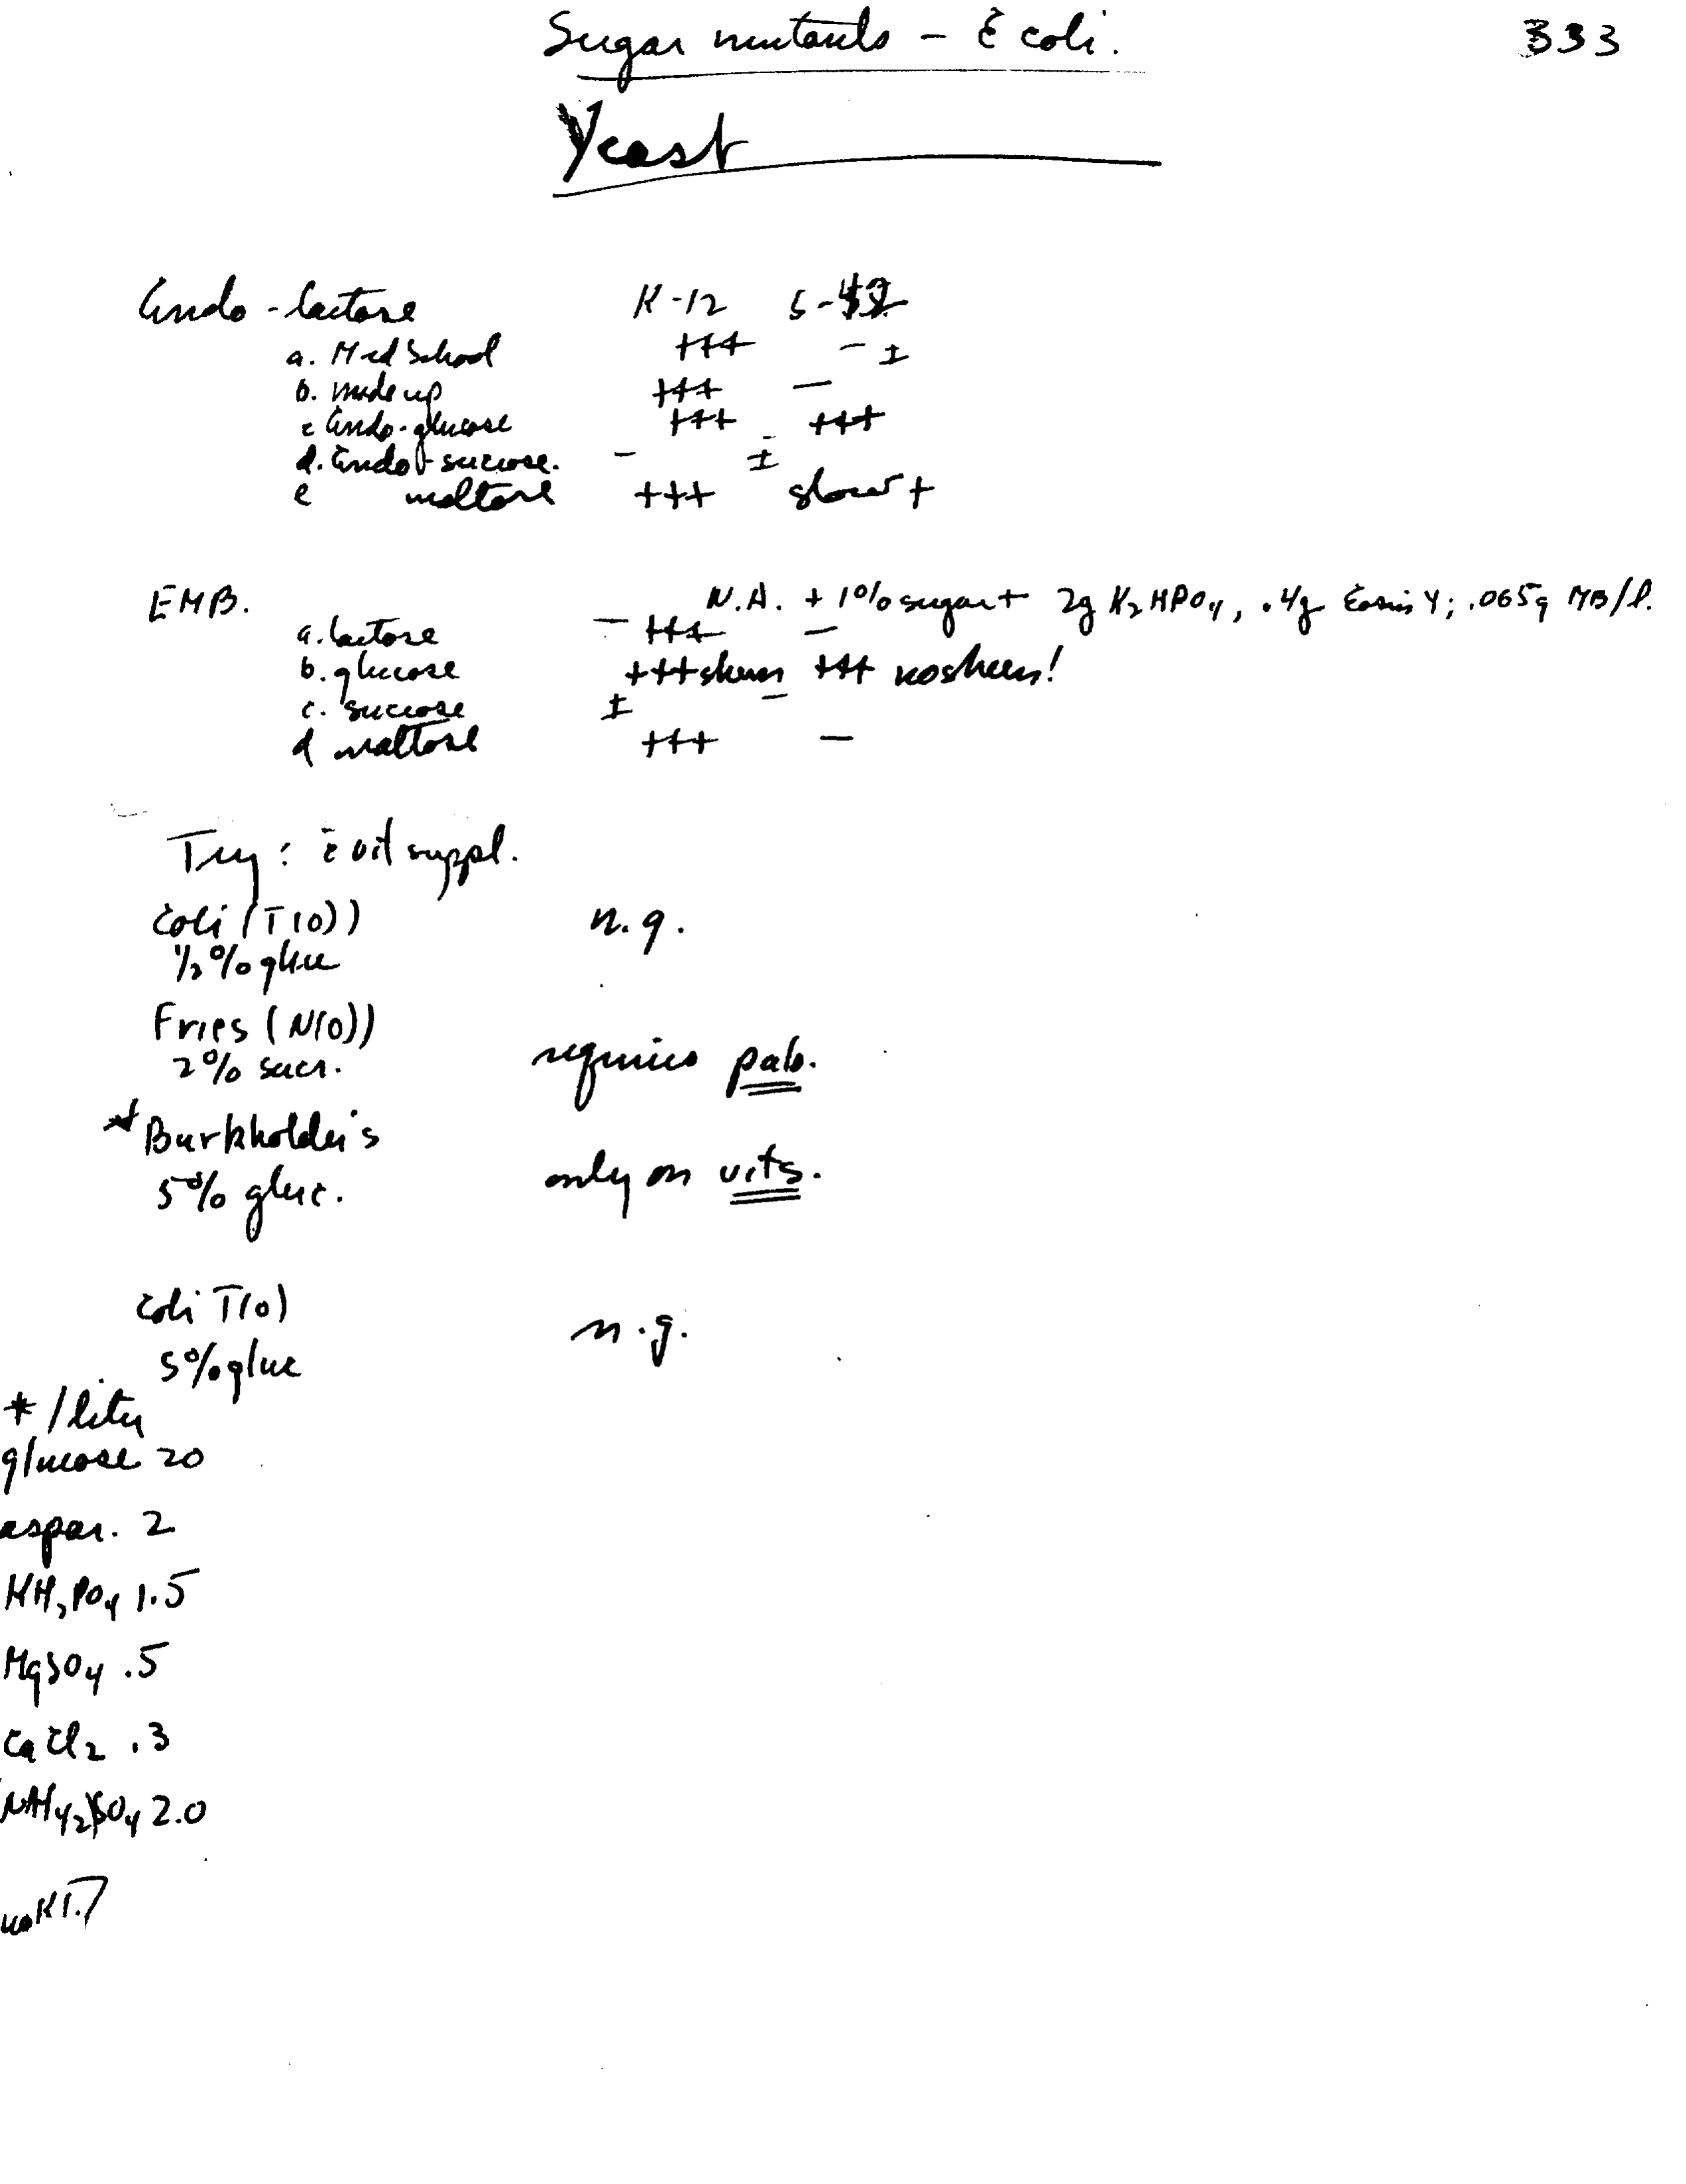 Sugar mutants – E coli. 333
Yeast
Endo - lactose K-12 S-
a. Med School +++ – ±
b. made up +++ –
c Endo-glucose +++ +++
d. Endo-sucrose. – ±
e maltose +++ slow +
EMB. N.A. + 1% sugar + 2g K2HPO4, .4g Eosin Y; .065g MB/l.
a. lactose – +++ –
b. glucose +++ sheen +++ no sheen!
c. sucrose ± –
d maltose +++ –
Try: c̄ vit suppl.
Coli (T(0)) n.g.
1/2 % gluc
Fries (N(0))
2% sucr. requires pab.
* Burkholder's
5% gluc. only on vits.
Coli T(0) n.g.
5% gluc
* /liter
glucose 20
aspar. 2
KH2PO4 1.5
MgSO4 .5
CaCl2 .3
NH4)2SO4 2.0